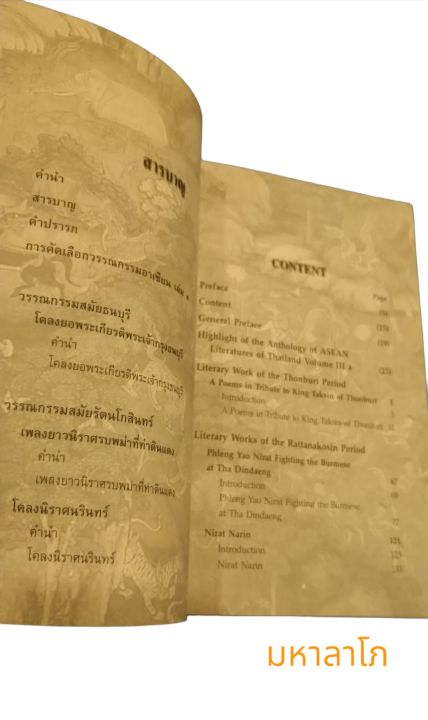 สารบาญ
คำนำ
สารบาญ
คำปรารภ
การคัดเลือกวรรณกรรมอาเซียน เล่ม
วรรณกรรมสมัยธนบุรี
โคลงยอพระเกียรติพระเจ้ากรุงธนบุรี
คำนำ
โคลงยอพระเกียรติพระเจ้ากรุงธนบุรี
วรรณกรรมสมัยรัตนโกสินทร์
เพลงยาวนิราศรบพม่าที่ท่าดินแดง
คำนำ
เพลงยาวนิราศรบพม่าที่ท่าดินแดง
โคลงนิราศนรินทร์
คำนำ
โคลงนิราศนรินทร์
CONTENT
Page
Preface
Content
General Preface
Highlight of the Anthology of ASEAN
Literatures of Thailand Volume III a
Literary Work of the Thonburi Period
A Poems in Tribute to King Taksin of Thonburi
Introduction
A Poems in Tribute to King Taksin of Thonburi
Literary Works of the Rattanakosin Period
Phleng Yao Nirat Fighting the Burmese
at Tha Dindaeng
Introduction
Phleng Yao Nirat Fighting the Burmese
at Tha Dindaeng 77
Nirat Narin 121
Introduction 123
Nirat Narin
มหาลาโภ